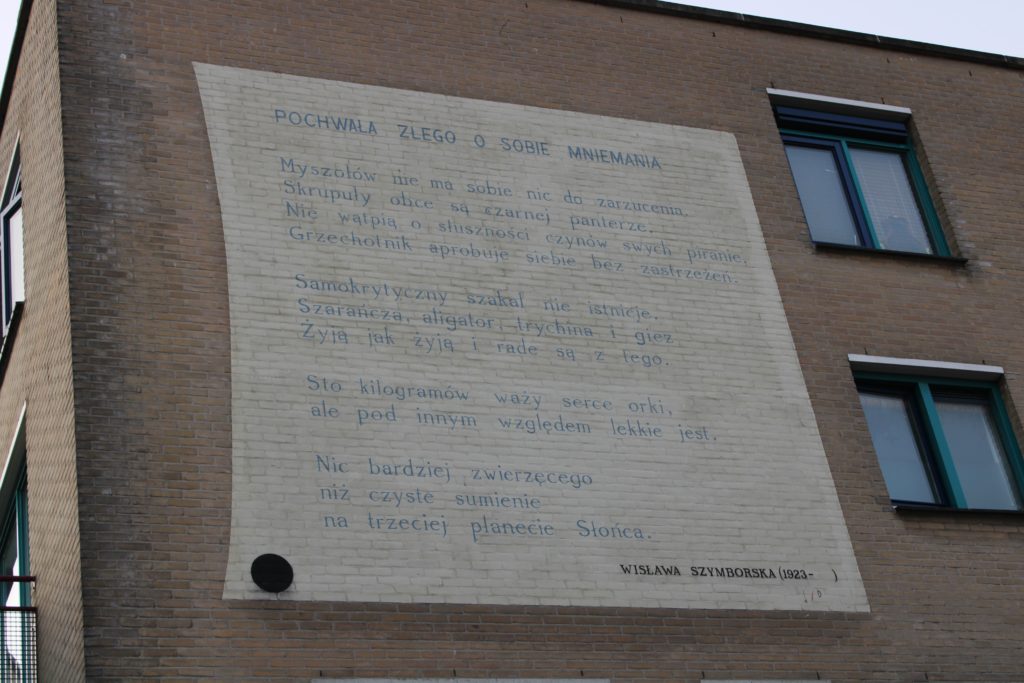 POCHWALA ZLEGO O SOBIE MNIEMANIA
Myszołów nie ma sobie nic do zarzucenia.
Skrupuły obce są czarnej panterze.
Nie wątpią o słuszności czynów swych piranie.
Grzechotnik aprobuje siebie bez zastrzeżeń.
Samokrytyczny szakal nie istnieje.
Szarańcza, aligator, trychina i giez
Żyją jak żyją i rade są z tego.
Sto kilogramów waży serce orki,
ale pod innym względem lekkie jest.
Nic bardziej zwierzęcego
niż czyste sumienie
na trzeciej planecie Słońca.
WISŁAWA SZYMBORSKA (1923- )